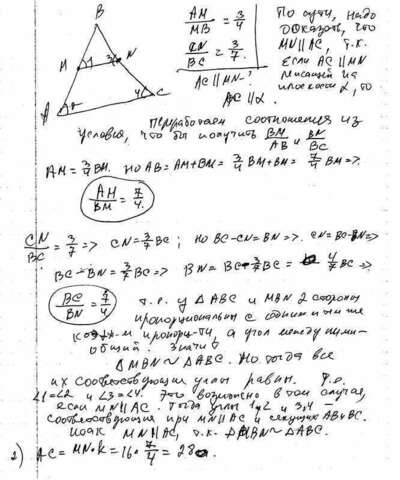 B
M
1
3
N
A
2
4
C
AM/MB = 3/4
CN/BC = 3/7.
AC||MN-?
По сути, надо
доказать, что
MN||AC, т.к.
если AC||MN
лежащей на
плоскости α, то
AC||α.
Переработаем соотношения из
условия, что бы получить BM/AB и BN/BC
AM = 3/4 BM. Но AB = AM+BM = 3/4 BM+BM = 7/4 BM =>.
AM/BM = 7/4.
CN/BC = 3/7 => CN = 3/7 BC; но BC-CN=BN =>. CN=BC-BN =>
BC-BN = 3/7 BC => BN = BC-3/7 BC = 4/7 BC =>
BC/BN = 7/4
т.е. у ΔABC и MBN 2 стороны
пропорциональны с одним и тем же
коэф-м пропорц-ти, а угол между ними-
общий. Значит
ΔMBN ~ ΔABC. Но тогда все
их соответствующие углы равны. Т.е.
∠1=∠2 и ∠3=∠4. Это возможно в том случае,
если MN||AC. Тогда углы 1,2 и 3,4 –
соответствующие при MN||AC и секущих AB и BC.
Итак MN||AC, т.к. ΔMBN ~ ΔABC.
2) AC = MN·k = 16·7/4 = 28